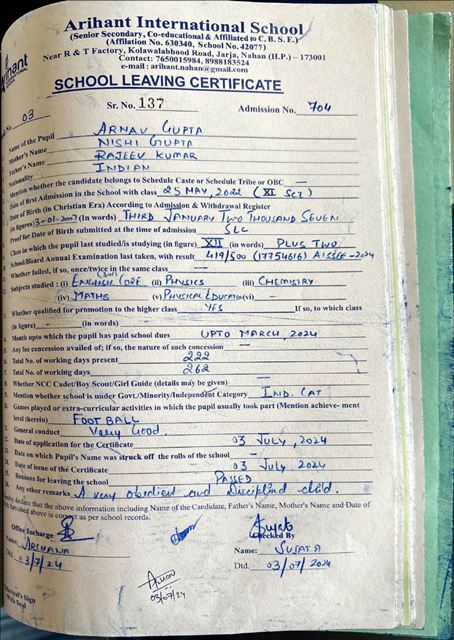 Arihant International School
(Senior Secondary, Co-educational & Affiliated to C. B. S. E.)
(Affiliation No. 630340, School No. 42077)
Near R & T Factory, Kolawalabhood Road, Jarja, Nahan (H.P.) – 173001
Contact: 7650015984, 8988183524
e-mail : arihant.nahan@gmail.com
SCHOOL LEAVING CERTIFICATE
Sr. No. 137 Admission No. 704
No. 03
Name of the Pupil ARNAV GUPTA
Mother's Name NISHI GUPTA
Father's Name RAJEEV KUMAR
Nationality INDIAN
Mention whether the candidate belongs to Schedule Caste or Schedule Tribe or OBC —
Date of first Admission in the School with class 25 MAY, 2022 (XI Sci)
Date of Birth (in Christian Era) According to Admission & Withdrawal Register
(in figures) 3-01-2007 (in Words) THIRD JANUARY TWO THOUSAND SEVEN
Proof for Date of Birth submitted at the time of admission SLC
Class in which the pupil last studied/is studying (in figure) XII (in words) PLUS TWO
School/Board Annual Examination last taken, with result 419/500 (17754616) AISSCE-2024
Whether failed, if so, once/twice in the same class —
Subjects studied : (i) ENGLISH CORE (ii) PHYSICS (iii) CHEMISTRY
(iv) MATHS (v) PHYSICAL EDUCATION (vi) –
Whether qualified for promotion to the higher class YES If so, to which class
(in figure) - (in words)
Month upto which the pupil has paid school dues UPTO MARCH, 2024
Any fee concession availed of; if so, the nature of such concession —
Total No. of working days present 222
Total No. of working days 262
Whether NCC Cadet/Boy Scout/Girl Guide (details may be given) —
Mention whether school is under Govt./Minority/Independent Category IND. CAT
Games played or extra-curricular activities in which the pupil usually took part (Mention achieve- ment
level therein) FOOT BALL
General conduct Very Good.
Date of application for the Certificate 03 JULY, 2024
Date on which Pupil's Name was struck off the rolls of the school –
Date of issue of the Certificate 03 July, 2024
Reasons for leaving the school PASSED
Any other remarks A very obedient and Disciplind child.
declare that the above information including Name of the Candidate, Father's Name, Mother's Name and Date of
furnished above is correct as per school records.
Office Incharge Checked By
Name: ARCHANA Name: SUJATA
Dtd. 03/7/24 Dtd. 03/07/2024
Arnav
03/07/24
Principal's Sign
With Seal